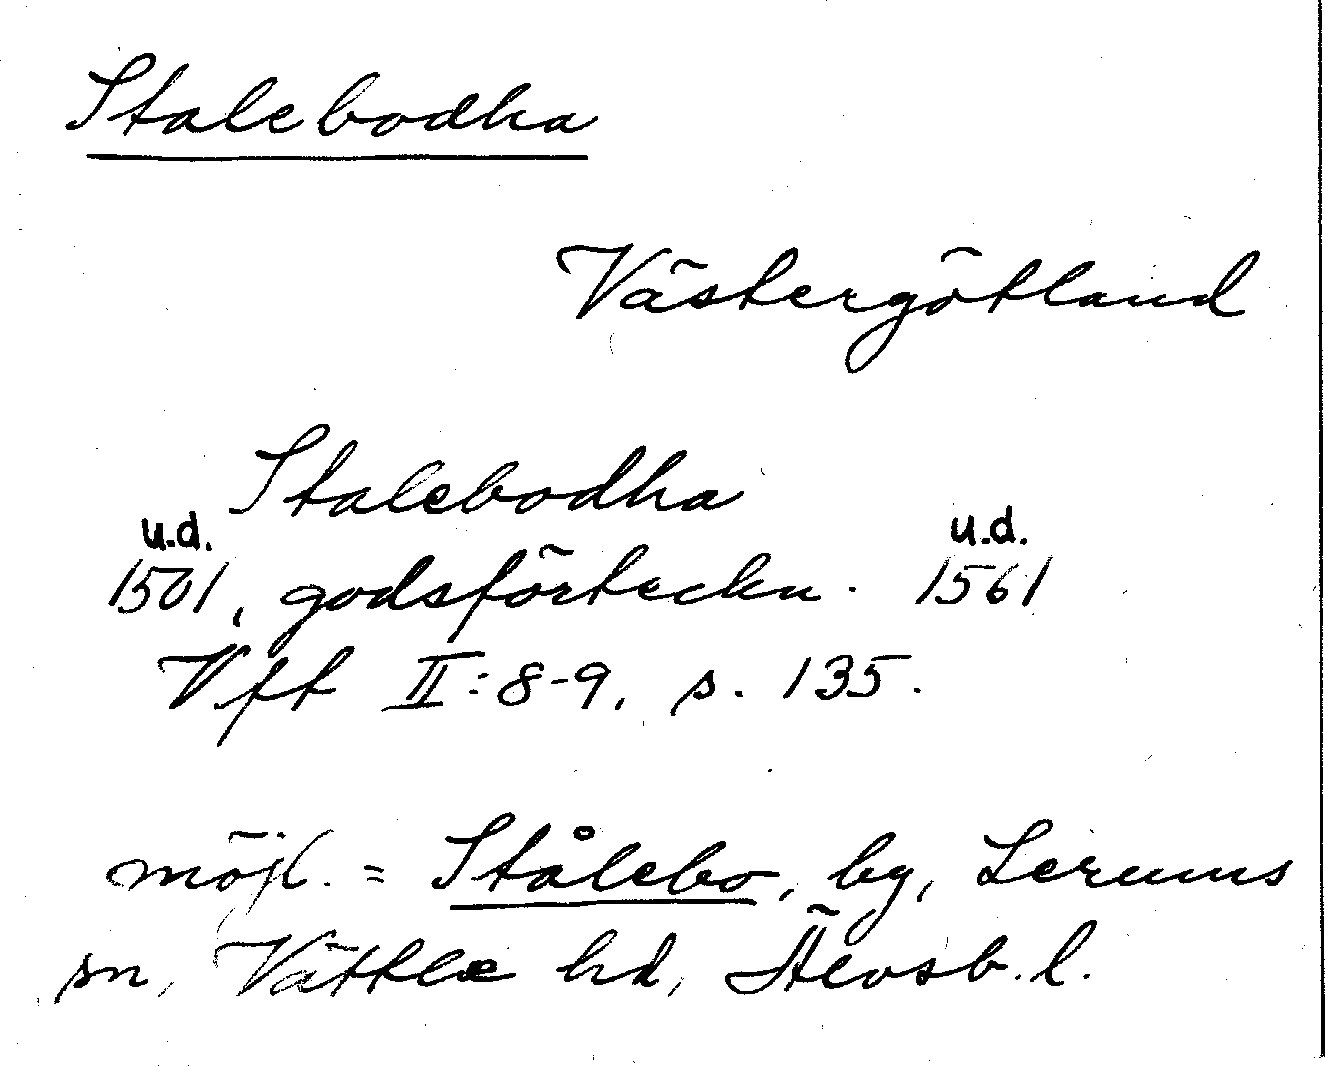 Stalebodha
Västergötland
Stalebodha
u.d. u.d.
1501, godsförteckn. 1561
Vft II:8-9, s. 135.
möjl. = Stålebo, by, Lerums
sn, Vättle hd, Älvsb. l.